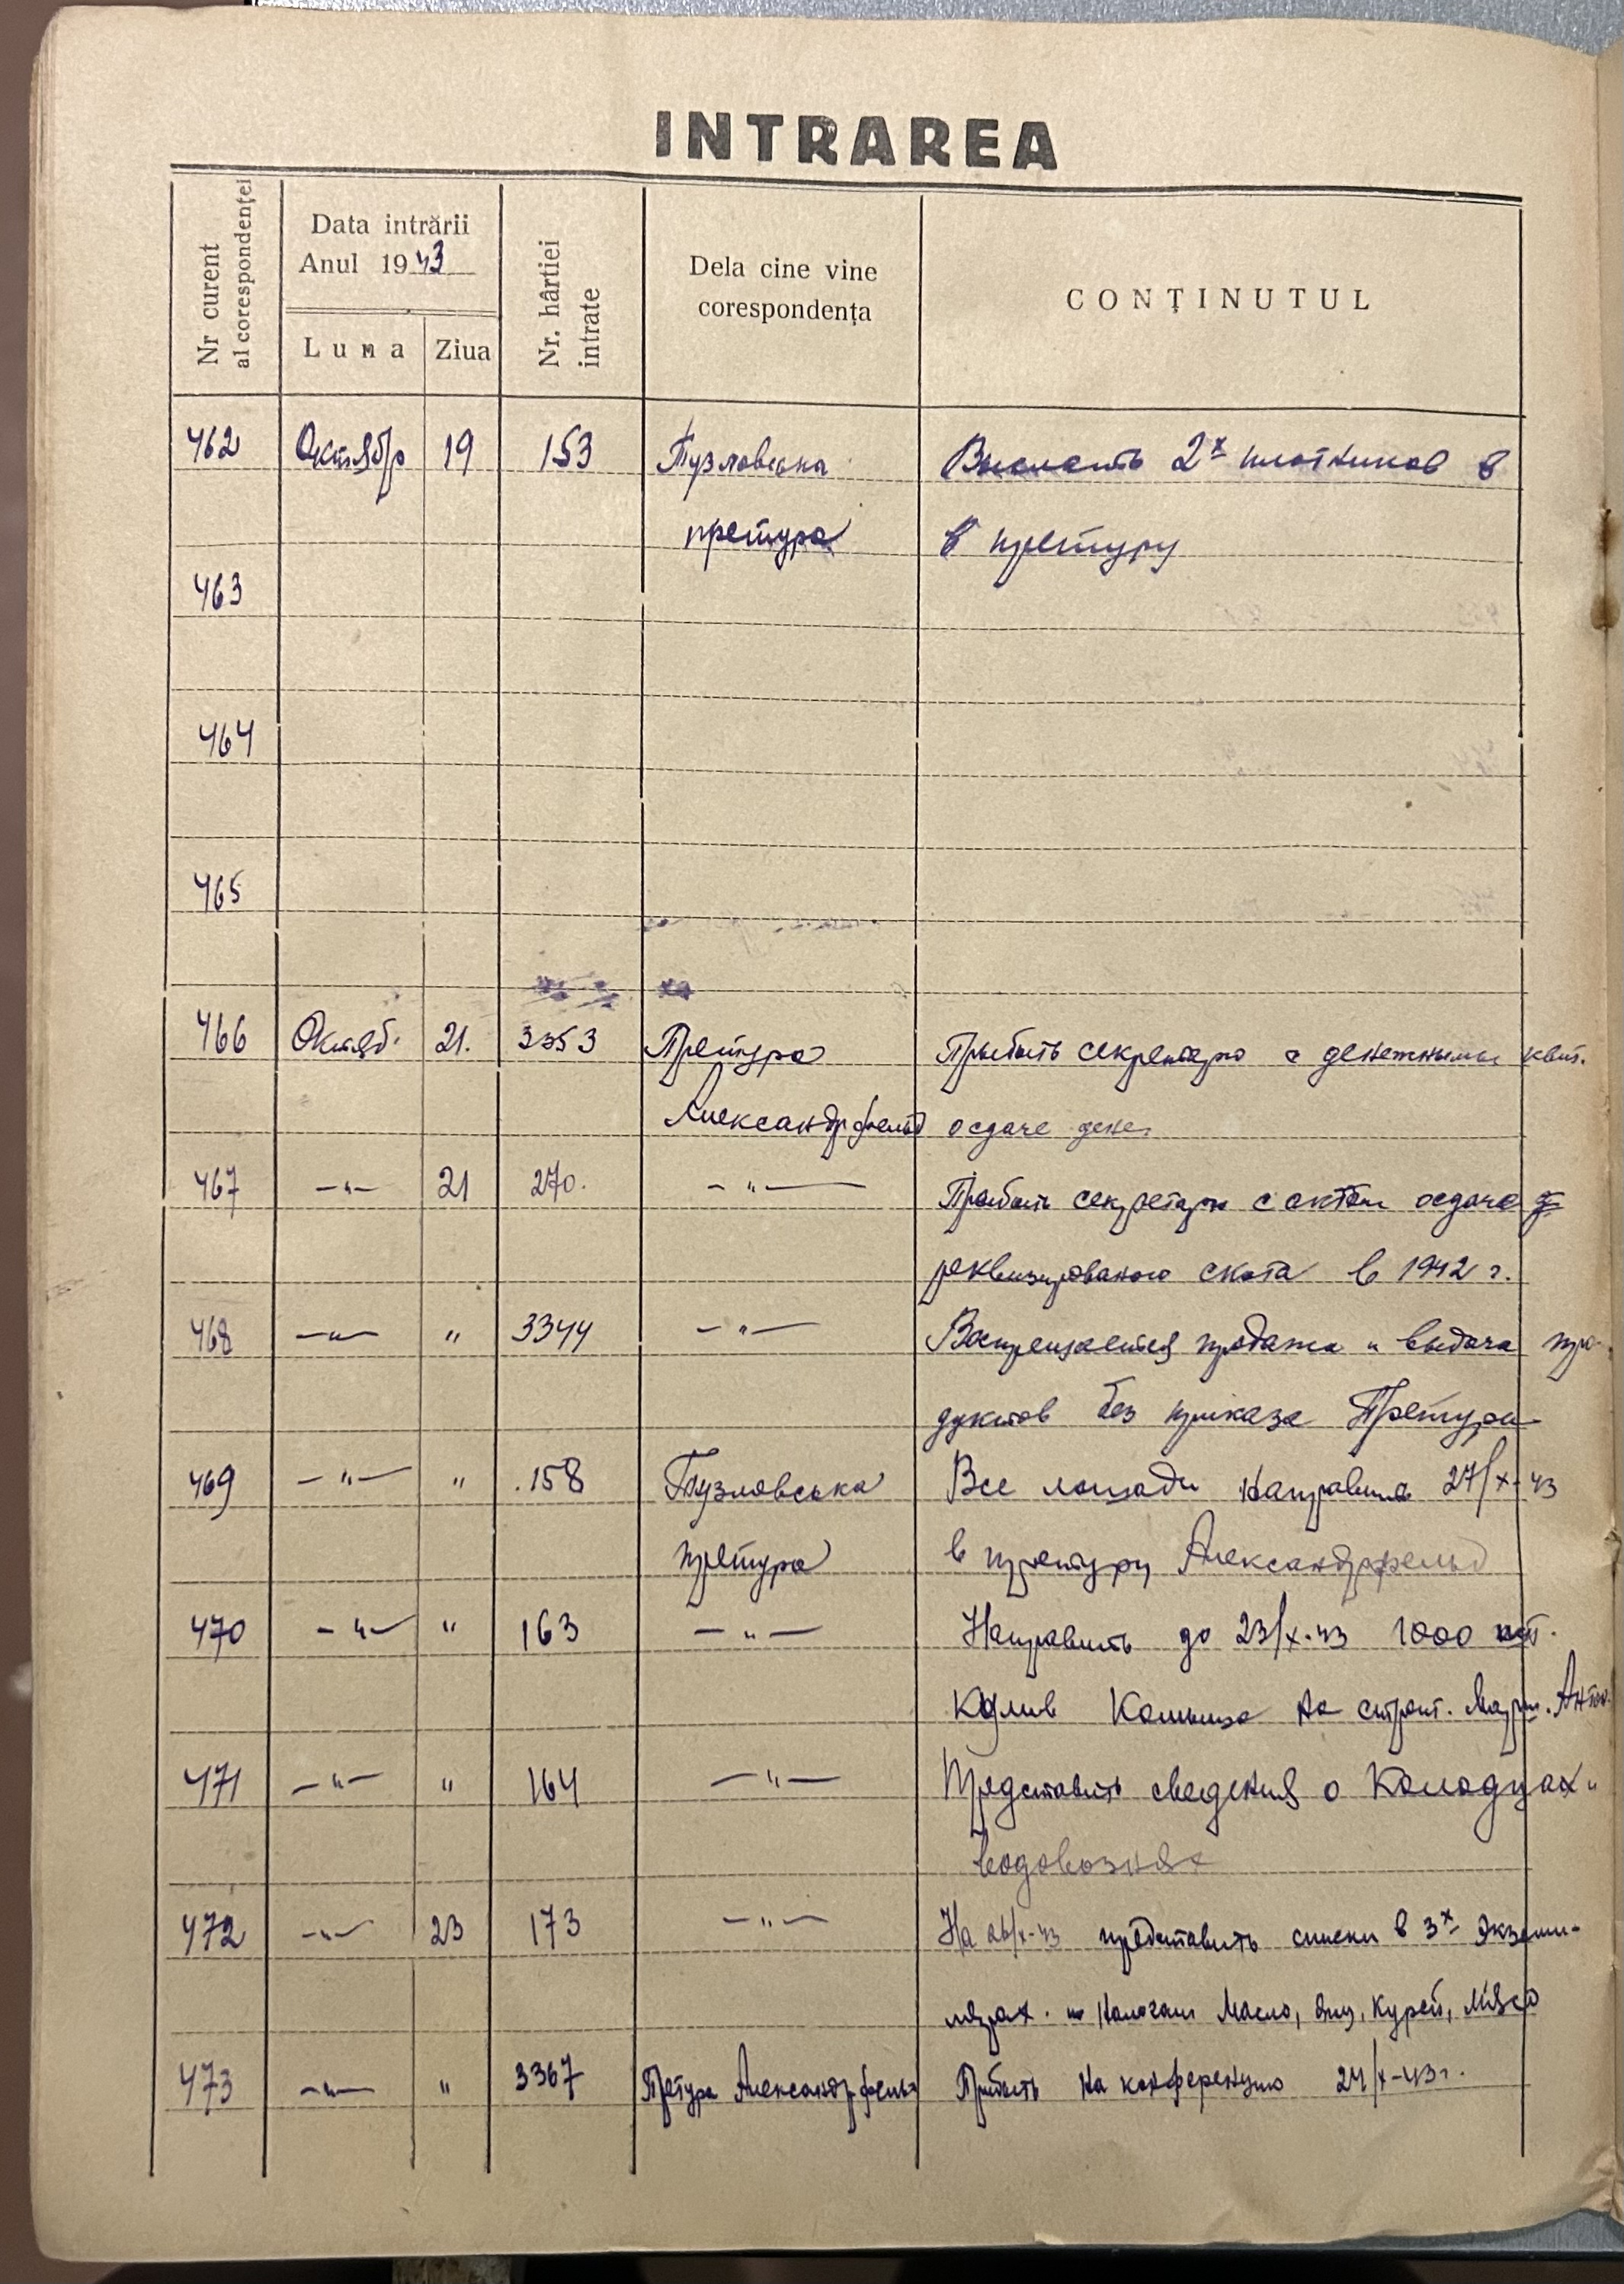 INTRAREA
Nr curent al corespondenței
Data intrării
Anul 1943
Luna Ziua
Nr. hârtiei intrate
Dela cine vine
corespondența
CONȚINUTUL
462 Октябр 19 153 Тузловська Выслать 2х плотников в
претура в претуру
463
464
465
466 Октяб. 21. 3353 Претура Прибыть секретарю с денежными квит.
Александрфельд о сдаче
467 —„— 21 270. —„— Прибыть секретарю с актом о сдаче
реквизированого скота в 1942 г.
468 —„— „ 3344 —„— Воспрещается продажа и выдача про-
дуктов без приказа Претури
469 —„— „ 158 Тузловська Все лошади направить 27/X-43
претура в претуру Александрфельд
470 —„— „ 163 —„— Направить до 23/X-43 1000 шт.
Камыша на строит.
471 —„— „ 164 —„— Представить сведения о Колодцах и
водовозках
472 —„— 23 173 —„— На 26/X-43 представить списки в 3х экземп-
лярах. Масло, яиц, курей, мясо
473 —„— „ 3367 Претура Александрфельд Прибыть на конференцию 24/X-43г.